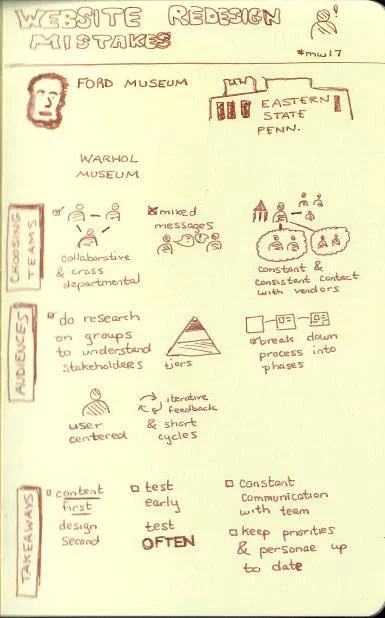 WEBSITE REDESIGN
MISTAKES
#mw17
FORD MUSEUM
EASTERN
STATE
PENN.
WARHOL
MUSEUM
CHOOSING
TEAMS
collaborative
& cross
departmental
mixed
messages
constant &
consistant contact
with vendors
AUDIENCES
do research
on groups
to understand
stakeholders
tiers
break down
process into
phases
user
centered
iterative
feedback
& short
cycles
TAKEAWAYS
content
first
design
second
test
early
test
OFTEN
constant
communication
with team
keep priorities
& personae up
to date